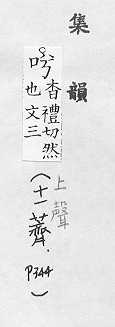 集韻
香禮切然
也文三
上聲
(十一薺.P344)